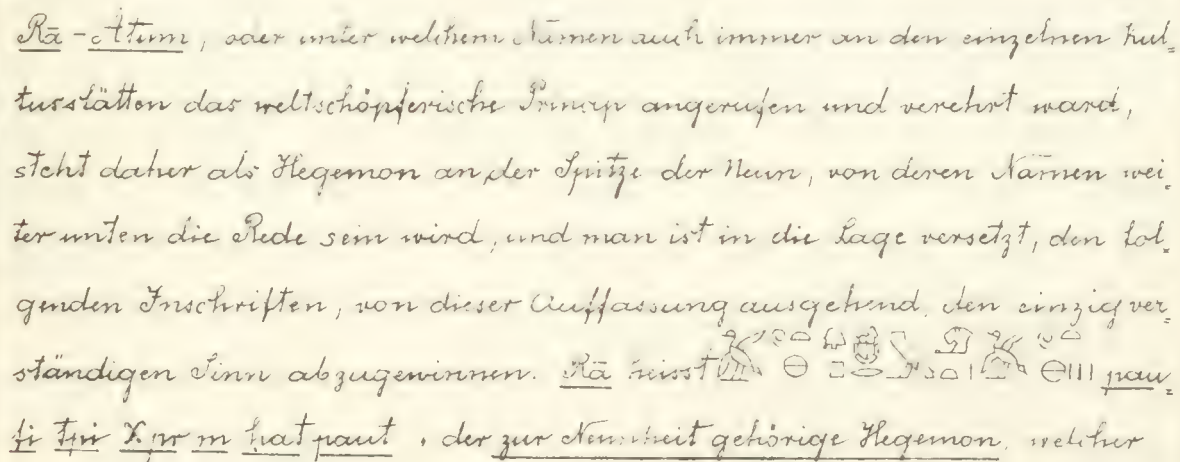 Rā-Atum, oder unter welchem Namen auch immer an den einzelnen Kul-
tusstätten das weltschöpferische Princip angerufen und verehrt ward,
steht daher als Hegemon an der Spitze der Neun, von deren Namen wei-
ter unten die Rede sein wird, und man ist in die Lage versetzt, den fol-
genden Inschriften, von dieser Auffassung ausgehend, den einzig ver-
ständigen Sinn abzugewinnen. Rā heisst pau-
ti tpi χpr m hat paut, der zur Neunheit gehörige Hegemon, welcher